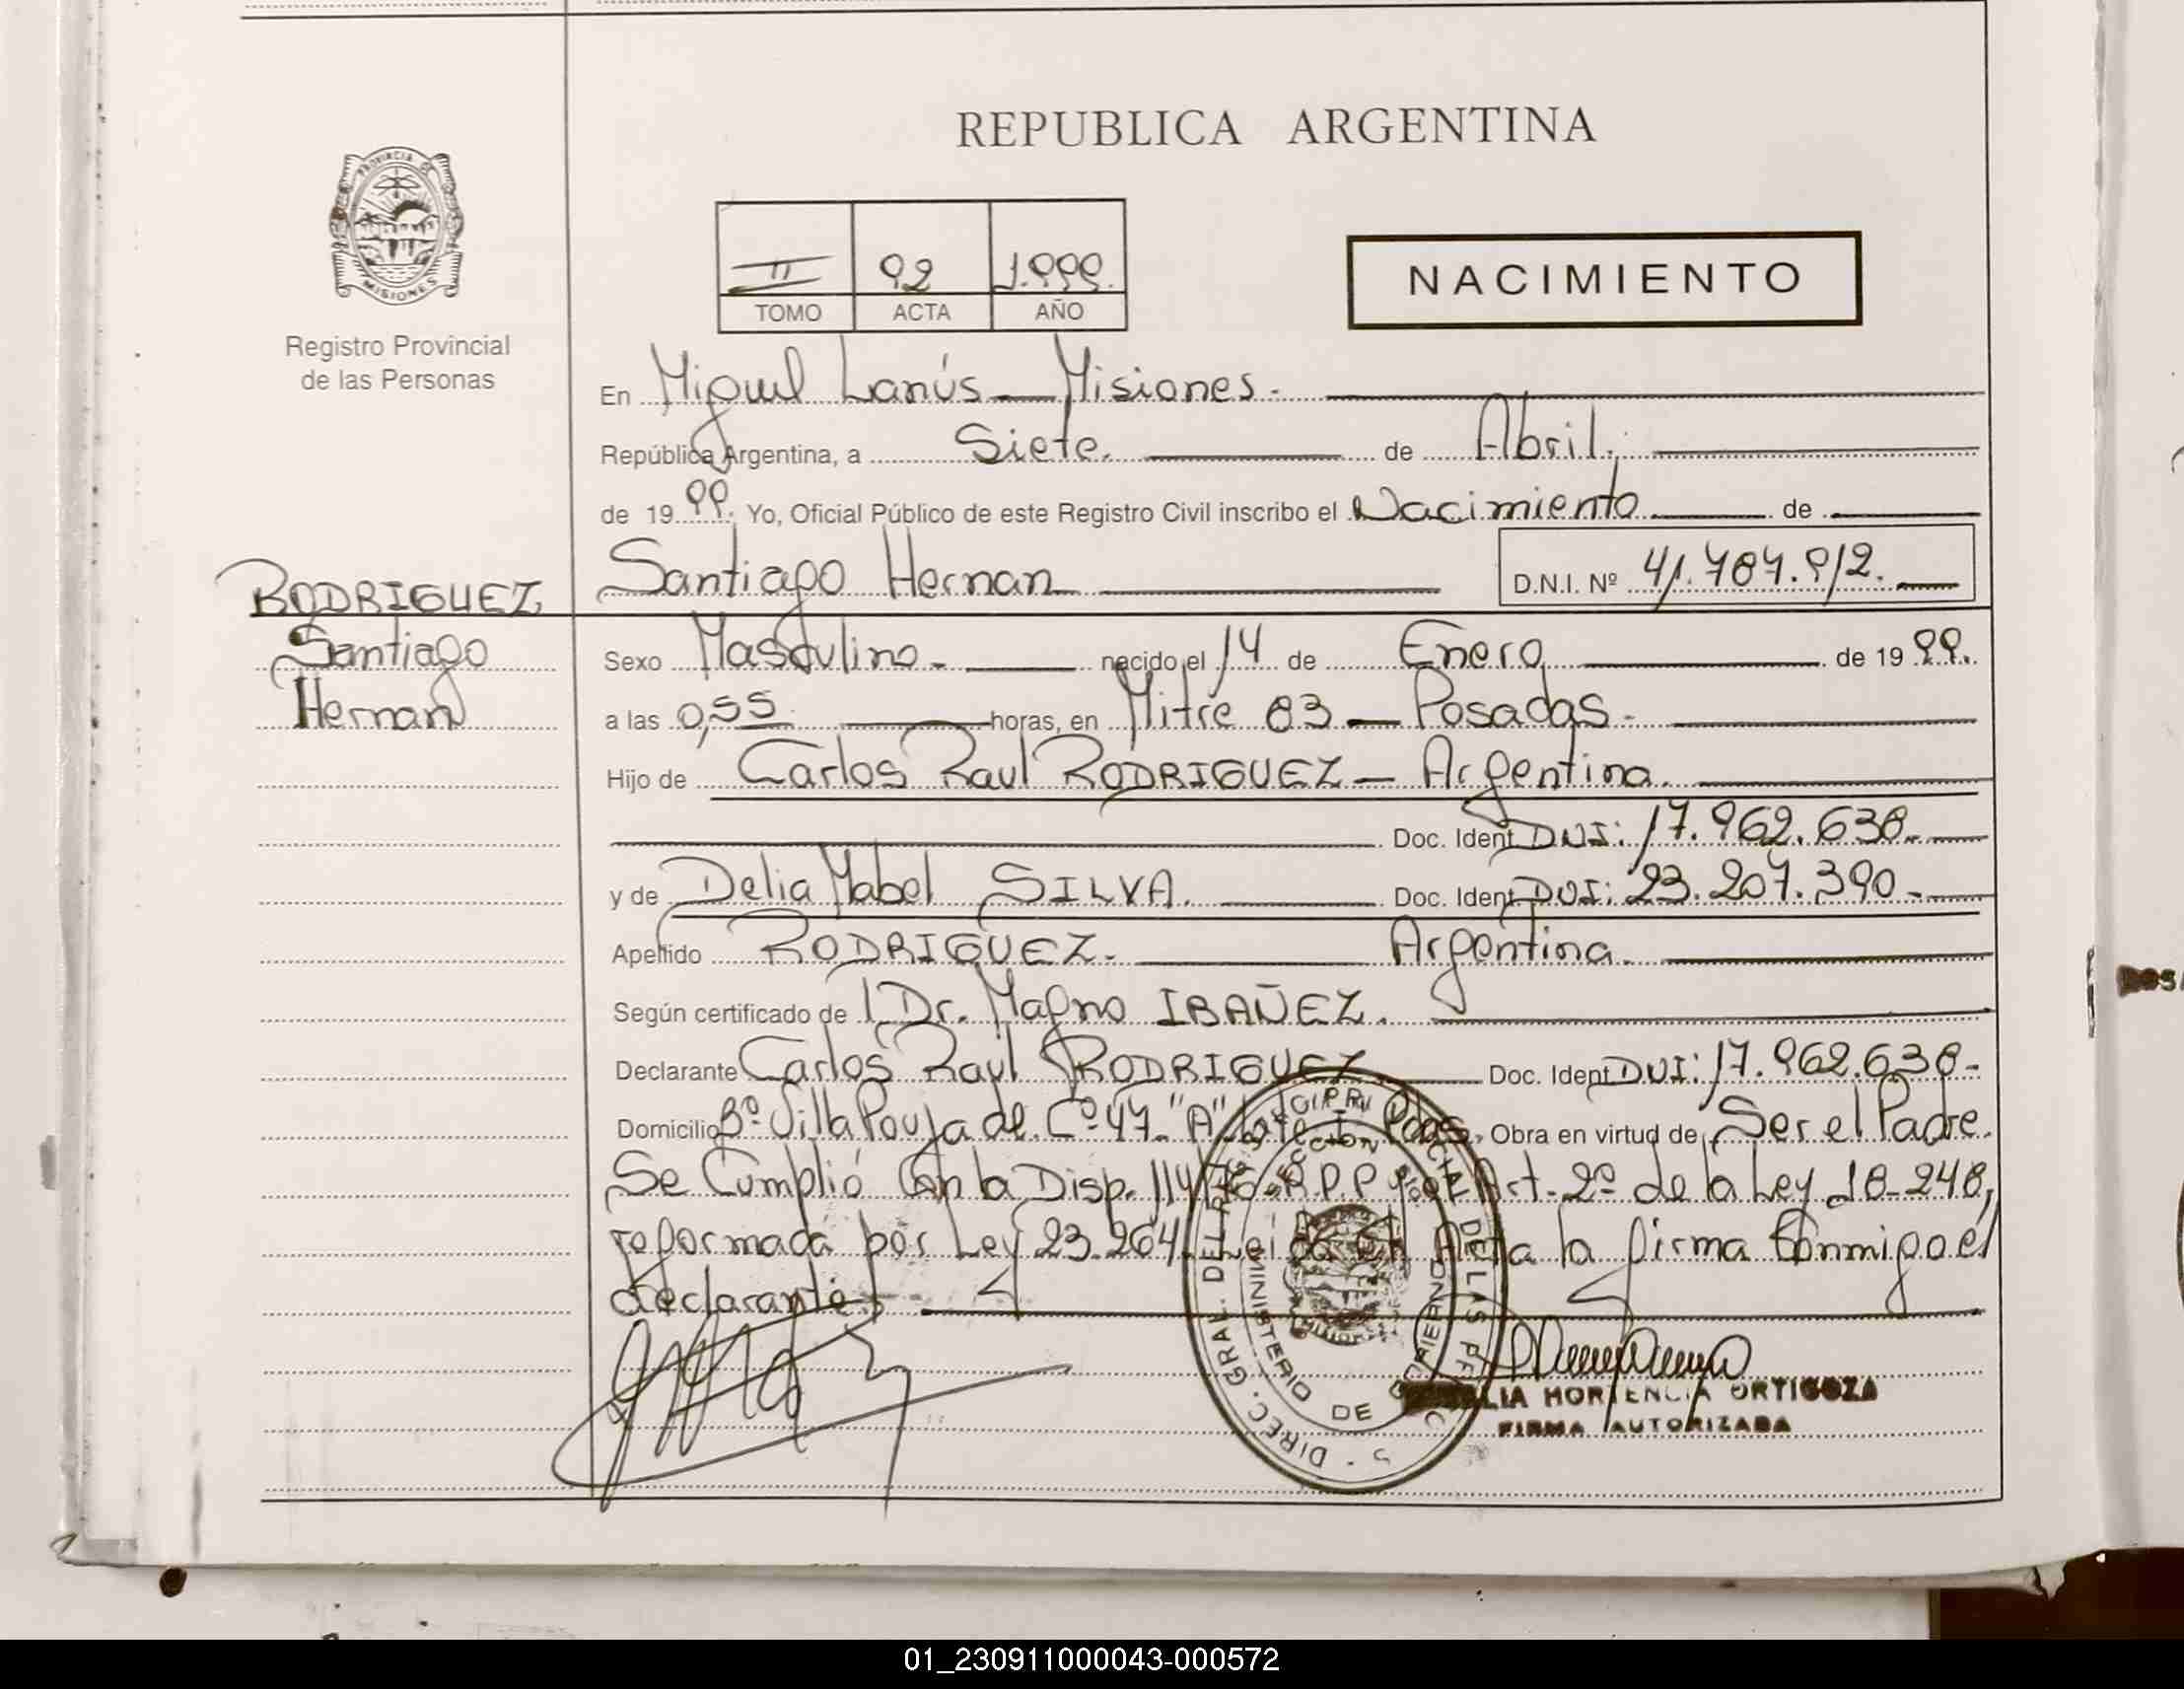 REPUBLICA ARGENTINA
PROVINCIA DE
MISIONES
Registro Provincial
de las Personas
II 92 1.999.
TOMO ACTA AÑO
NACIMIENTO
En Miguel Lanús - Misiones.-
República Argentina, a Siete. de Abril.
de 1999. Yo, Oficial Público de este Registro Civil inscribo el Nacimiento de
RODRIGUEZ
Santiago
Hernan
Santiago Hernan D.N.I. Nº 41.787.912.
Sexo Masculino.- nacido el 14 de Enero de 1999.
a las 0,55 horas, en Mitre 83 - Posadas.-
Hijo de Carlos Raul RODRIGUEZ - Argentina.
Doc. Ident DNI: 17.962.638.-
y de Delia Mabel SILVA. Doc. Ident DNI: 23.207.390.-
Apellido RODRIGUEZ.- Argentina.
Según certificado de l Dr. Magno IBAÑEZ.
Declarante Carlos Raul RODRIGUEZ Doc. Ident DNI: 17.962.638-
Domicilio Bº Villa Poujade. Cº 47. "A" Pdas. Obra en virtud de Ser el Padre.
Se Cumplió Con la Disp. 114 R.P.P Art- 2º de la Ley 18-248,
reformada por Ley 23.264. Leida Acta la firma Conmigo el
declarante.
DIREC. GRAL. DEL REGISTRO PROVINCIAL DE LAS
MINISTERIO DE GOBIERNO
HORTENCIA ORTIGOZA
FIRMA AUTORIZADA
01_230911000043-000572